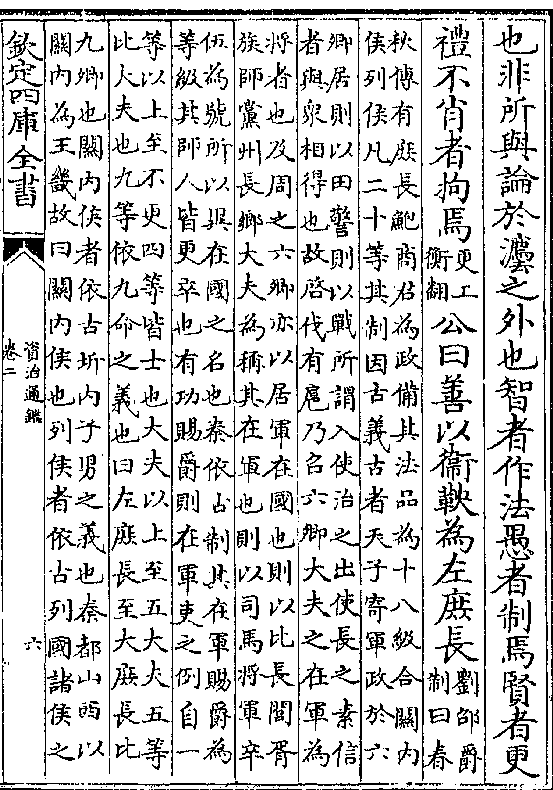 也非所與論於灋之外也智者作法愚者制焉賢者更
禮不肖者拘焉更工衡翻公曰善以衞鞅為左庶長劉邵爵制曰春
秋傳有庶長鮑商君為政備其法品為十八級合關內
侯列侯凡二十等其制因古義古者天子寄軍政於六
卿居則以田警則以戰所謂入使治之出使長之素信
者與衆相得也故啓伐有扈乃召六卿大夫之在軍為
將者也及周之六卿亦以居軍在國也則以比長閭胥
族師黨州長鄉大夫為稱其在軍也則以司馬將軍卒
伍為號所以異在國之名也秦依古制其在軍賜爵為
等級其師人皆更卒也有功賜爵則在軍吏之例自一
等以上至不更四等皆士也大夫以上至五大夫五等
比大夫也九等依九命之義也曰左庶長至大庶長比
九卿也關內侯者依古圻內子男之義也秦都山西以
關內為王畿故曰關內侯也列侯者依古列國諸侯之
欽定四庫全書
資治通鑑
卷二
六